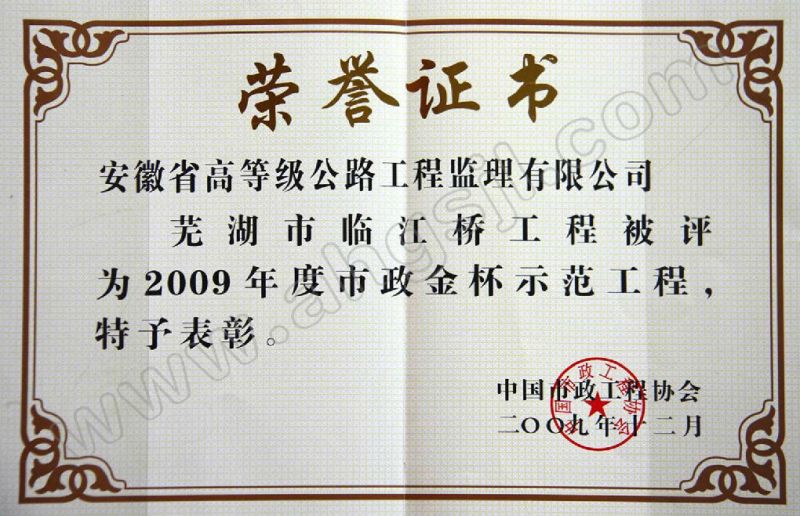 荣誉证书
安徽省高等级公路工程监理有限公司
芜湖市临江桥工程被评
为2009年度市政金杯示范工程,
特予表彰。
中国市政工程协会
二〇〇九年十二月
中国市政工程协会
www.ahgsjl.com